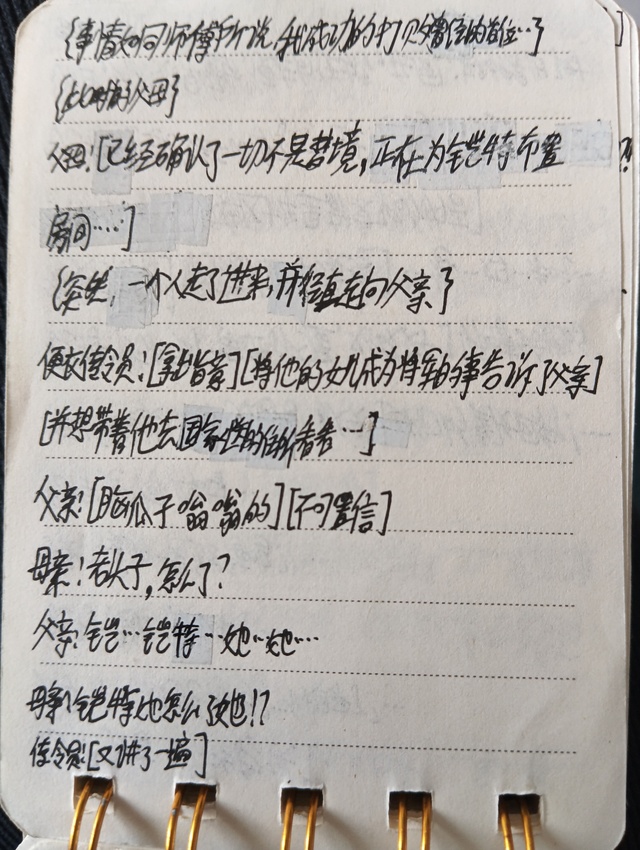 {事情如同师傅所说,我成功的打败曾经的首位…}
{此时的父母}
父母:[已经确认了一切不是梦境,正在为铠特布置
房间……]
{突然,一个人走了进来,并径直走向父亲}
便衣传令员:[拿出旨意][将他的女儿成为将军的事告诉了父亲]
[并想带着他去国家
看看…]
父亲:[脑瓜子嗡嗡的][不可置信]
母亲:老头子,怎么了?
父亲:铠…铠特…她…她…
母亲:铠特她怎么了她!?
传令员:[又讲了一遍]